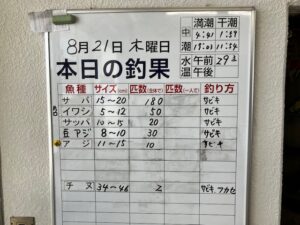 8月21日 木曜日
満潮 干潮
中 4:41 1:59
潮 19:03 11:54
水温 午前 29℃
午後
本日の釣果
魚種 サイズ(cm) 匹数(全体) 匹数(一人で) 釣り方
サバ 15~20 180 サビキ
イワシ 5~12 50 サビキ
サッパ 10~15 20 サビキ
豆アジ 8~10 30 サビキ
アジ 11~15 10 サビキ
チヌ 34~46 2 サビキ、フカセ